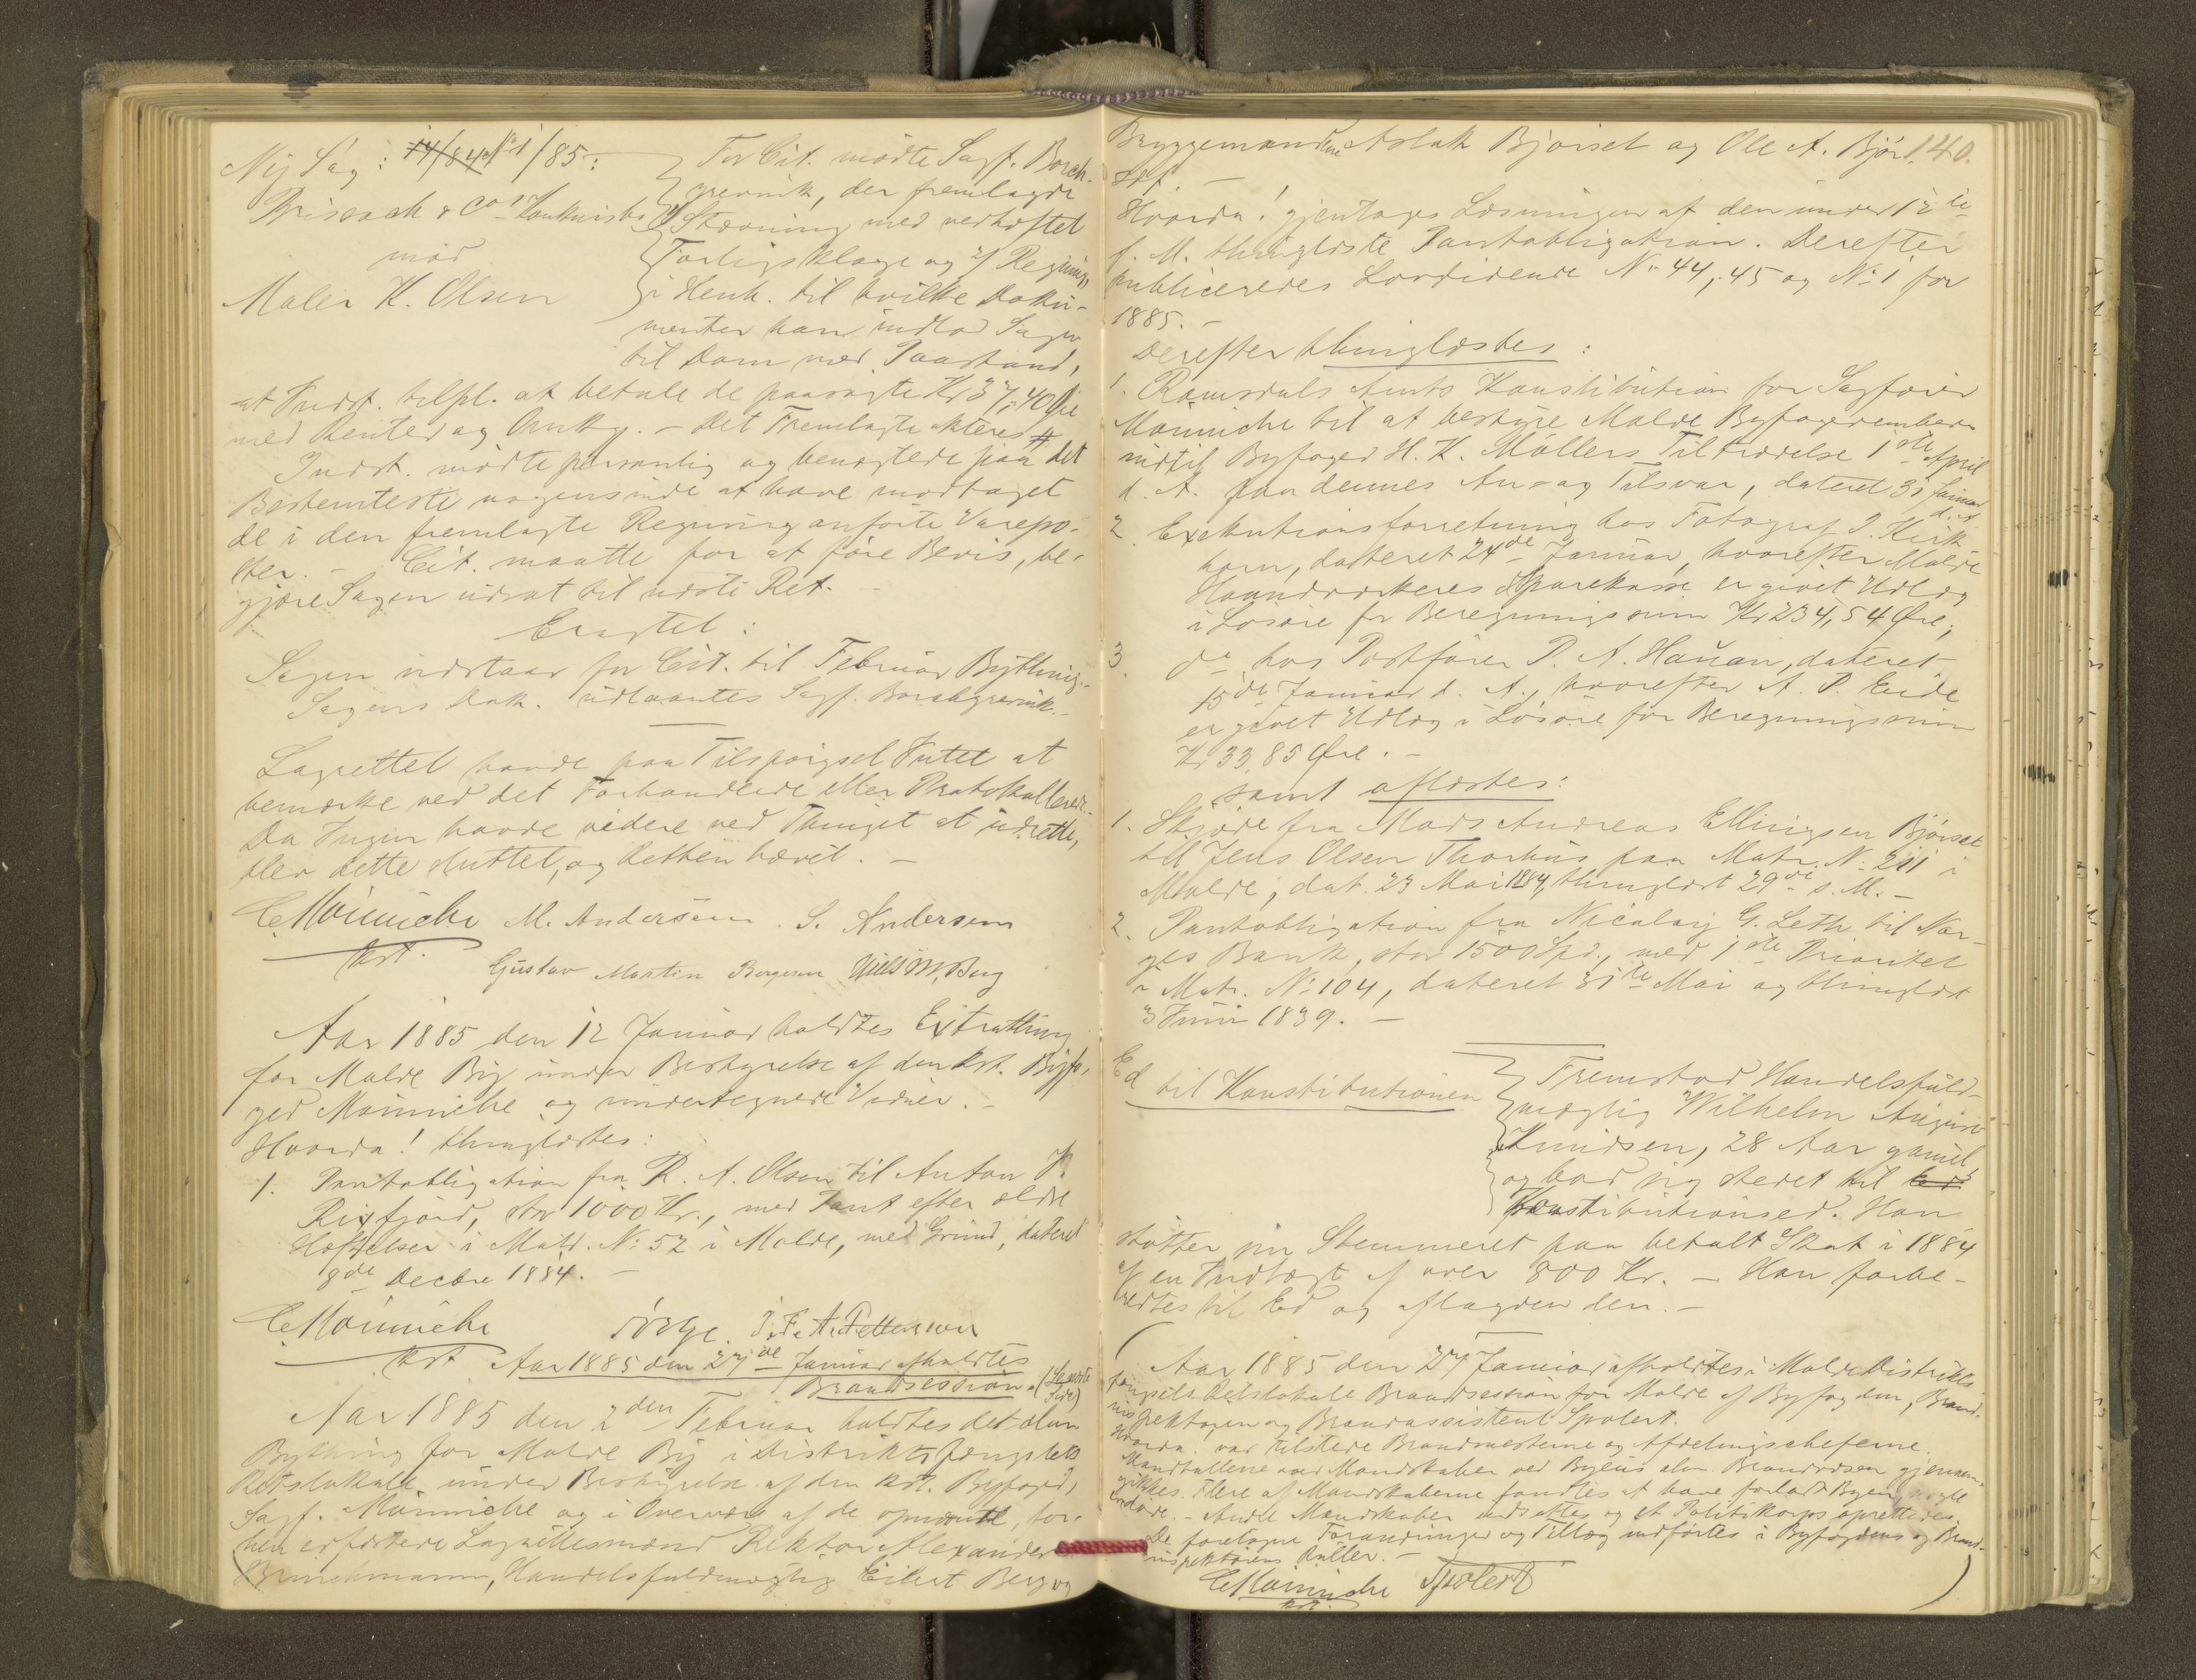 Ny Sag: 14/84 No 1/85:
Brisach & Cos Konkursbo
mod
Maler K. Olsen
For Cit. mødte Sagf. Borch-
grevink, der fremlagde
Stævning med vedhæftet
Forligsklage og Regning,
i Henh. til hvilke Doku-
menter han indlod Sagen
til Dom med Paastand,
at Indst. tilpl. at betale de paasagte Kr 37,40 Øre
med Renter og Omkg. - Det Fremlagte akteres #
Indst. mødte personlig og benægtede paa det
Bestemteste nogensinde at have modtaget
de i den fremlagte Regning anførte Varepo-
ster. - Cit. maatte for at føre Bevis, be-
gjære Sagen udsat til næste Ret. -
Eragtet:
Sagen udstaar for Cit. til Februar Bything.-
Sagens Dok. udlaantes Sagf. Borchgrevink.-
Lagrettet havde paa Tilspørgsel Intet at
bemærke ved det Forhandlede eller Protokollerede.
Da Ingen havde videre ved Thinget at udrette,
blev dette sluttet, og Retten hævet. -
C. Mönniche M. Andersen. S. Andersen
kst. Gustav Martin Borgersen Niels M. Berg
Aar 1885 den 12 Januar holdtes Extrathing
for Molde By under Bestyrelse af den kst. Byfo-
ged Mönniche og undertegnede Vidner. -
Hvorda! thinglæstes:
1. Pantobligation fra R. A. Olsen til Anton K.
Rixfjord, stor 1000 Kr., med Pant efter ældre
Hæftelser i Matr. No 52 i Molde, med Grund, dateret
8de Decbr 1884. -
C. Mönniche J. F. A. Pettersen
kst Aar 1885 den 27de Januar afholdtes
Brandsession. (Se næste
Side)
Aar 1885 den 2den Februar holdtes det alm.
Bything for Molde By i Distriktsfængslets
Retslokale under Bestyrelse af den kst. Byfoged,
Sagf. Mönniche og i Overvær af de opnævnte, for-
hen edfæstede Lagrettesmænd Rektor Alexander
Brinchmann, Handelsfuldmægtig Eilert Berg og
Bryggemændene Aslak Bjørset og Ole A. Bjør- 140.
set. -
Hvorda! gjentoges Læsningen af den under 12te
f. M. thinglæste Pantobligation. Derefter
publiceredes Lovtidende No 44, 45 og No 1 for
1885. -
Derefter thinglæstes:
1. Romsdals Amts Konstitution for Sagfører
Mönniche til at bestyre Molde Byfogedembede
indtil Byfoged H. K. Møllers Tiltrædelse 1ste April
d. A. paa dennes An- og Tilsvar, dateret 31 Januar
d. A.
2. Exekutionsforretning hos Fotograf J. Kirk
horn, dateret 24de Januar, hvorefter Molde
Haandværkeres Sparekasse er givet Udlæg
i Løsøre for Beregningssum Kr 234,54 Øre,
3. do hos Postfører P. A. Haüan, dateret
15de Januar d. A., hvorefter A. P. Eide
er givet Udlæg i Løsøre for Beregningssum
Kr 33,85 Øre. -
samt aflæstes:
1. Skjøde fra Mads Andreas Ellingsen Bjørset
til Jens Olsen Thorhus paa Matr. No 211 i
Molde, dat. 23 Mai 1884, thinglæst 29de s. M. -
2. Pantobligation fra Nicolay G. Leth til Nor-
ges Bank, stor 1500 Spd., med 1ste Prioritet
i Matr. No 104, dateret 31te Mai og thinglæst
3 Juni 1839. -
Ed til Konstitutionen
Fremstod Handelsfuld-
mægtig Wilhelm August
Knudsen, 28 Aar gammel
og bad sig stedet til Ed
Konstitutionsed. Han
støtter sin Stemmeret paa betalt Skat i 1884
af en Indtægt af over 800 Kr. - Han forbe-
redtes til Ed og aflagde den. -
(Aar 1885 den 27de Januar afholdtes i Molde Distrikts
fængsels Retslokale Brandsession for Molde af Byfogden, Brand-
inspektøren og Brandassistent Spolert.
Hvorda var tilstede Brandmesterne og Afdelingscheferne.
Mandtallene over Mandskaber ved Byens alm. Brandvæsen gjennem-
gikkes. Flere af Mandskaberne fandtes at have forladt Byen, nogle
vare døde. - Andre Mandskaber indsattes og et Politikorps oprettedes
De foretagne Forandringer og Tillæg indførtes i Byfogdens og Brand-
inspektørens Ruller. -
C. Mönniche Spolert
kst. )